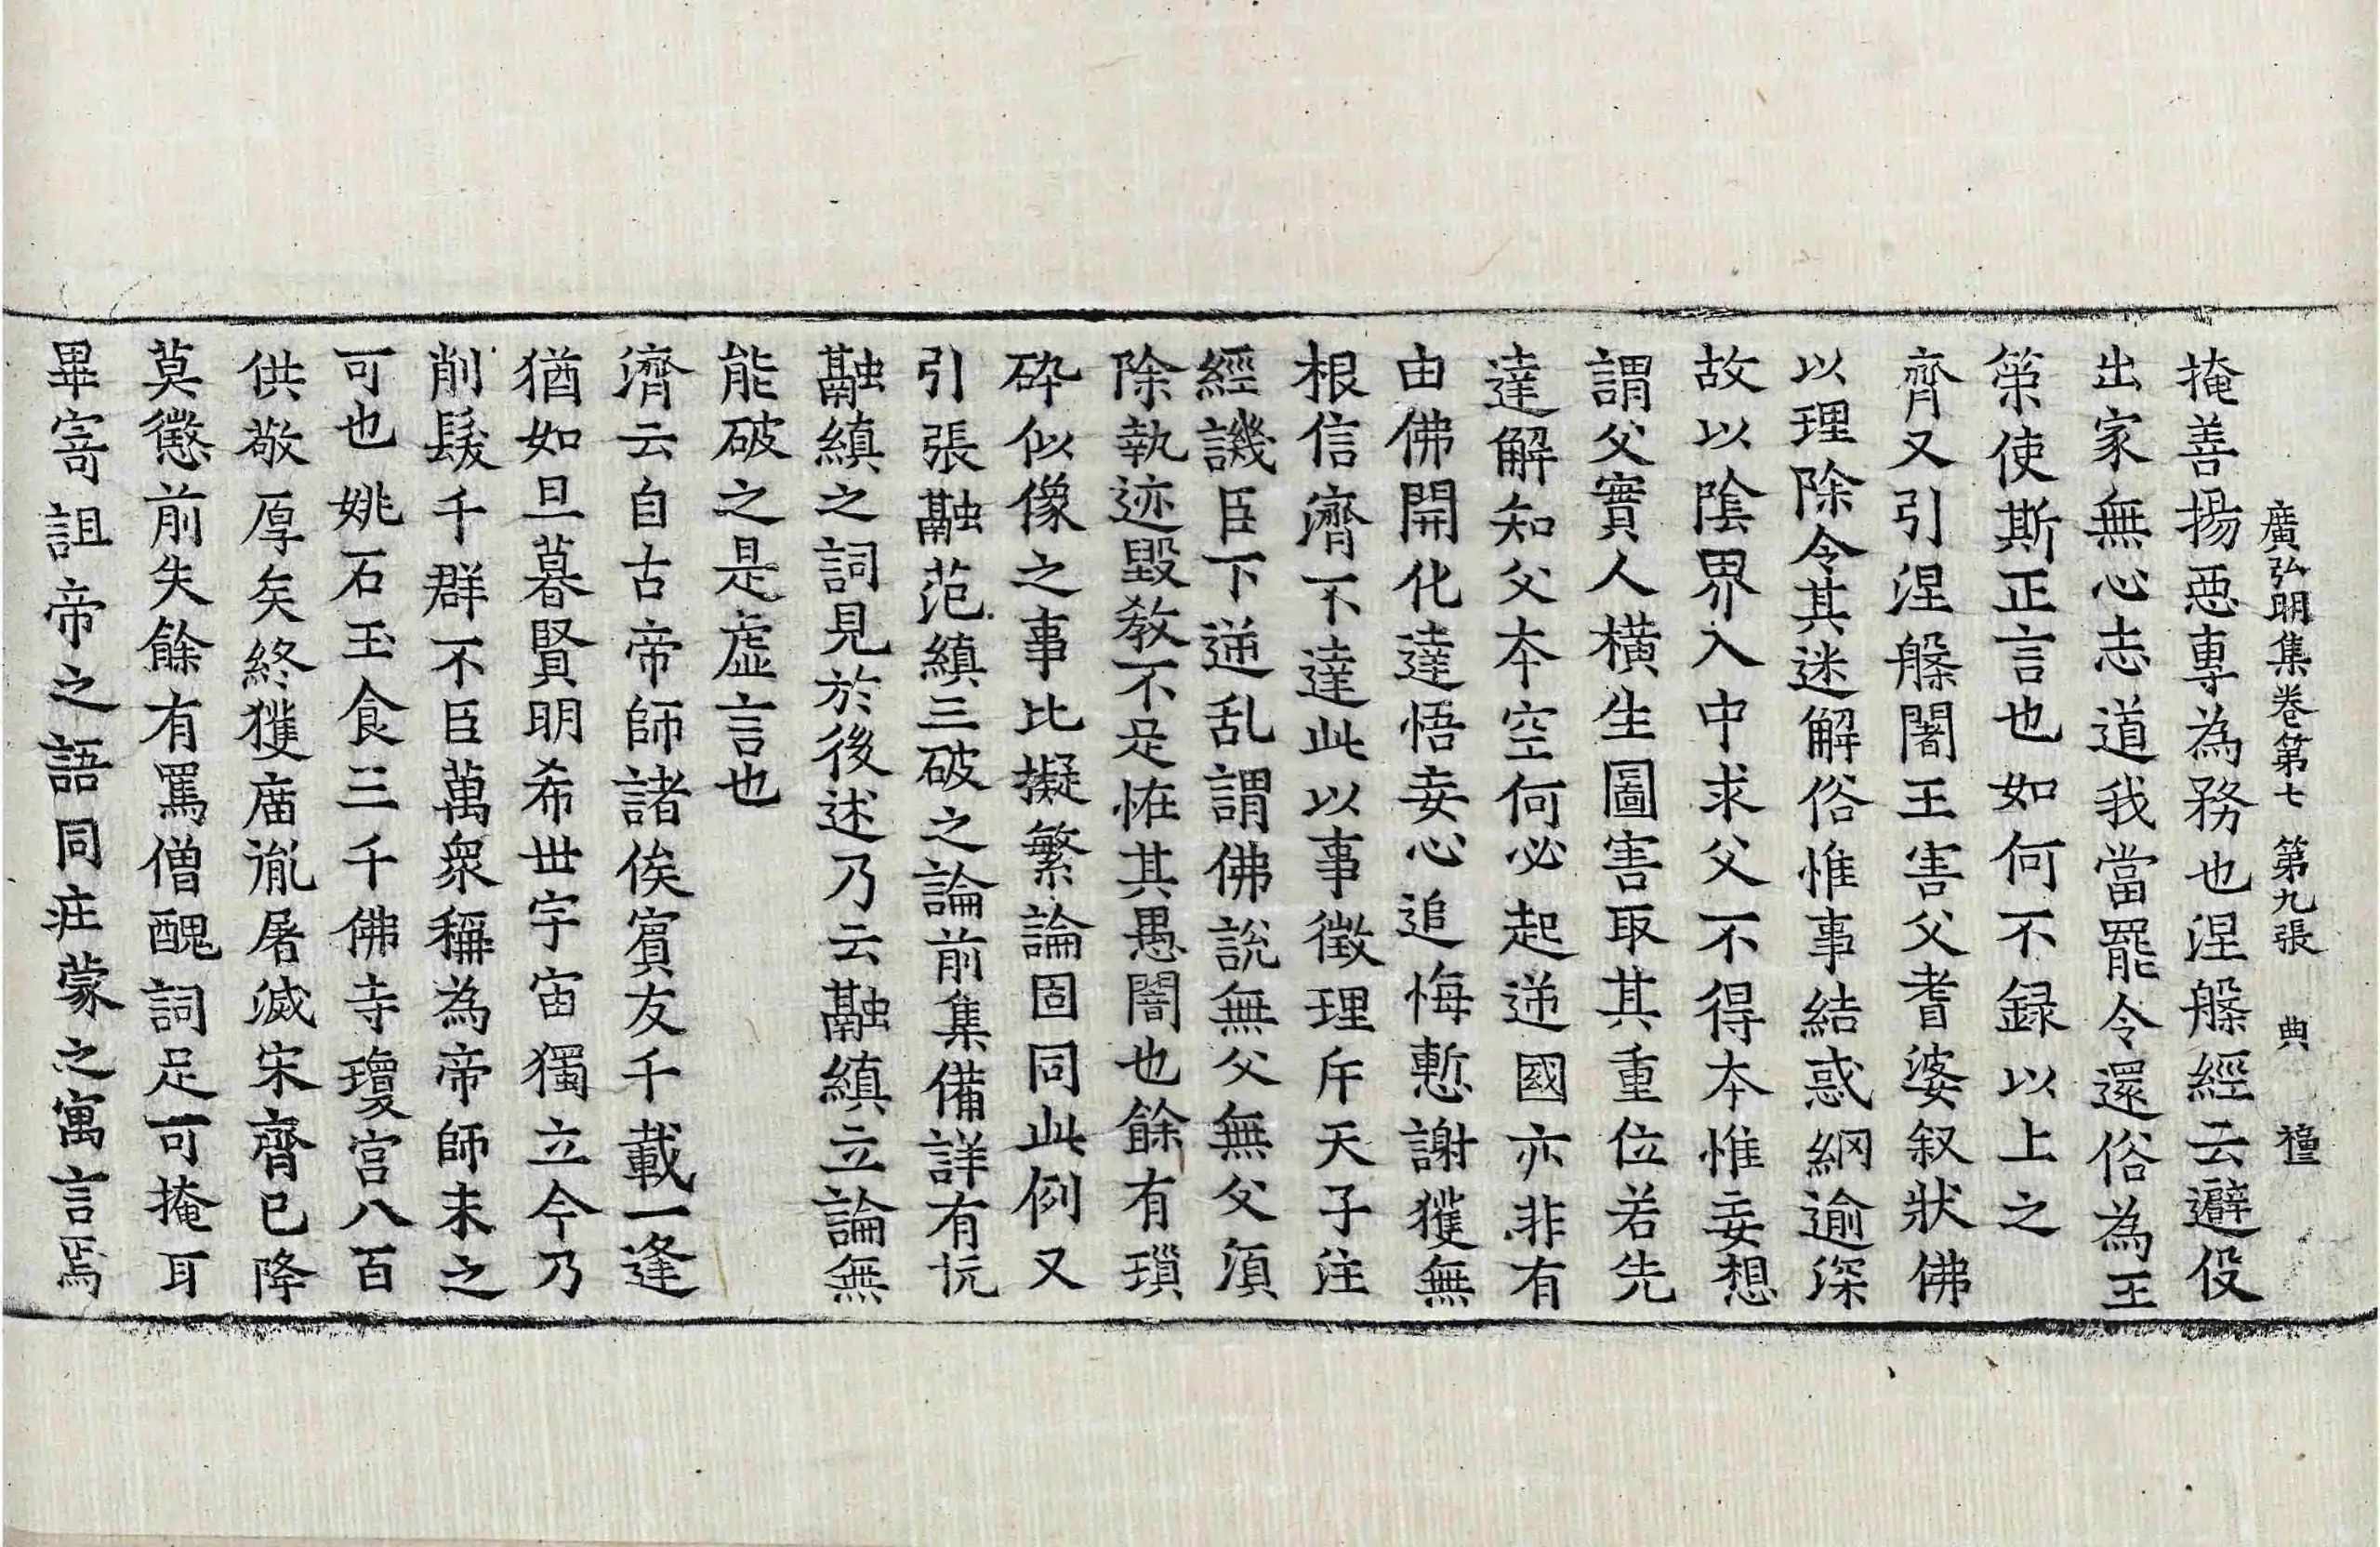 廣弘明集卷第七　第九張　典　禋
掩善揚惡專為務也涅槃經云避役
出家無心志道我當罷令還俗為王
策使斯正言也如何不録以上之
齊又引涅槃闍王害父耆婆叙狀佛
以理除令其迷解俗惟事結惑網逾深
故以陰界入中求父不得本惟妄想
謂父實人橫生圖害取其重位若先
達解知父本空何必起逆國亦非有
由佛開化達悟妄心追悔慙謝獲無
根信濟不達此以事徵理斥天子注
經譏臣下逆乱謂佛説無父無父須
除執迹毀教不足恠其愚闇也餘有瑣
碎似像之事比擬繁論固同此例又
引張融范縝三破之論前集備詳有抗
融縝之詞見於後述乃云融縝立論無
能破之是虛言也
濟云自古帝師諸侯賓友千載一逢
猶如旦暮賢明希世宇宙獨立今乃
削髮千群不臣萬衆稱為帝師未之
可也姚石玉食三千佛寺瓊宮八百
供敬厚矣終獲庿胤屠滅宋齊已降
莫懲前失餘有罵僧醜詞足可掩耳
畢寄詛帝之語同莊蒙之寓言焉